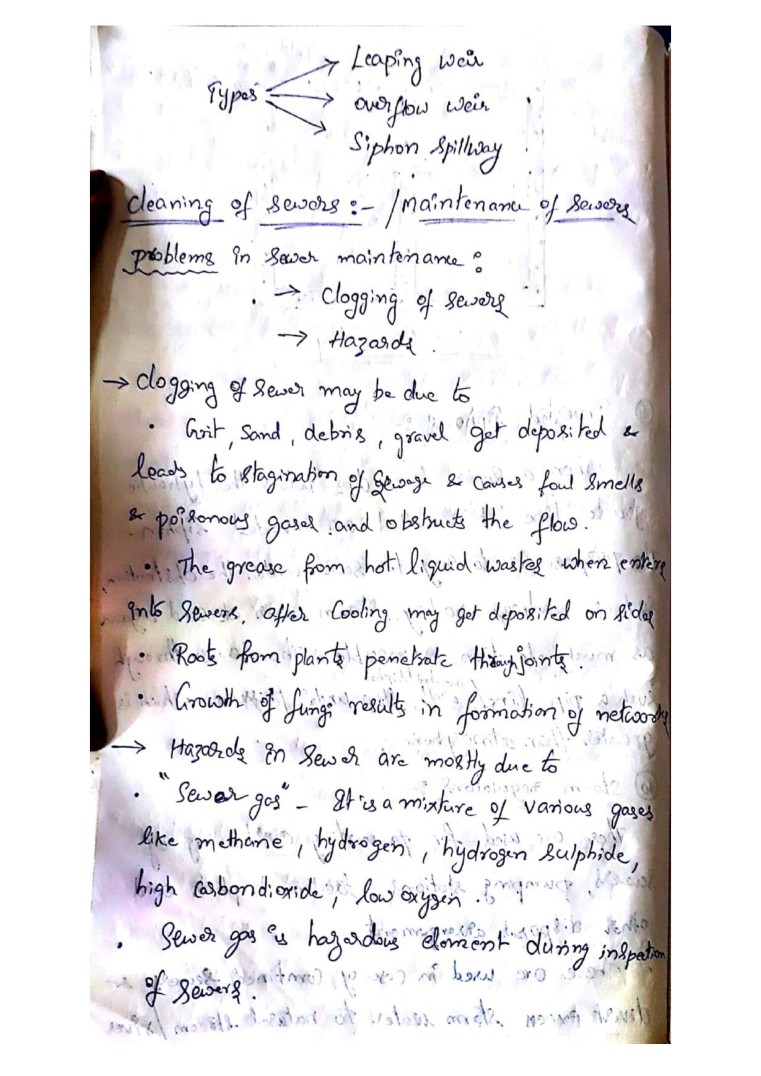 Leaping weir
Types
overflow weir
Siphon Spillway
cleaning of sewers :- /Maintenance of Sewers
problems in sewer maintenance :
→ Clogging of sewers
→ Hazards.
→ Clogging of sewer may be due to
• Grit, sand, debris, gravel get deposited &
leads to stagination of sewage & causes foul smells
& poisonous gases and obstructs the flow.
• The grease from hot liquid wastes when enters
into sewers, after cooling may get deposited on sides
• Roots from plants penetrate through joints.
• Growth of fungi results in formation of networks
→ Hazards in sewer are mostly due to
• "Sewer gas" - It is a mixture of various gases
like methane, hydrogen, hydrogen sulphide,
high carbondioxide, low oxygen.
• Sewer gas is hazardous element during inspetion
of sewers.